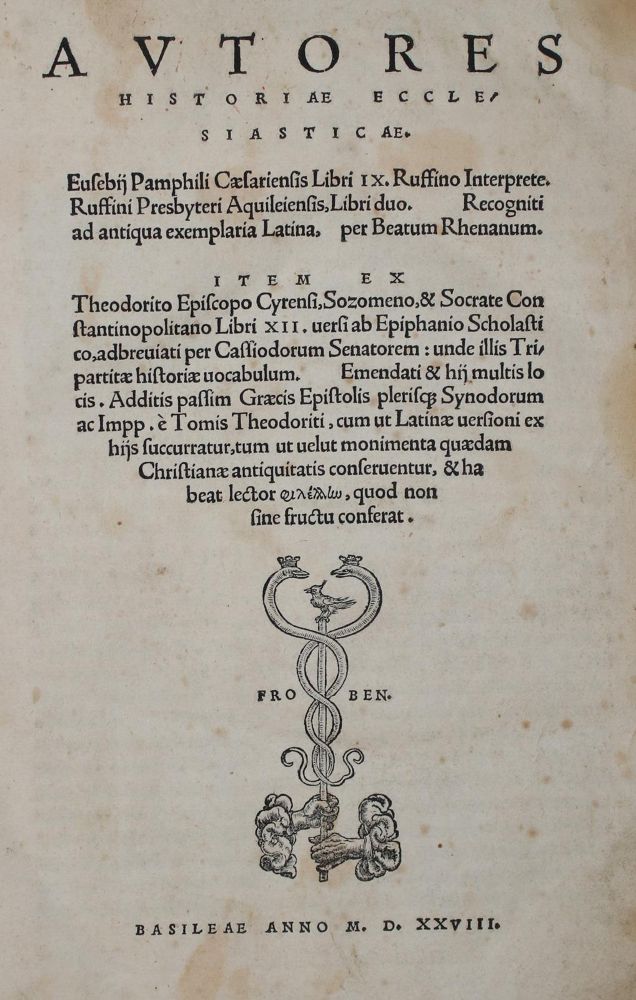 AVTORES
HISTORIAE ECCLE/
SIASTICAE.
Euſebij Pamphili Cæſarienſis Libri IX. Ruffino Interprete.
Ruffini Presbyteri Aquileienſis, Libri duo. Recogniti
ad antiqua exemplaria Latina, per Beatum Rhenanum.
ITEM EX
Theodorito Epiſcopo Cyrenſi, Sozomeno, & Socrate Con
ſtantinopolitano Libri XII. uerſi ab Epiphanio Scholaſti
co, adbreuiati per Caſſiodorum Senatorem: unde illis Tri/
partitæ hiſtoriæ uocabulum. Emendati & hij multis lo
cis. Additis paſſim Græcis Epiſtolis pleriſq; Synodorum
ac Impp. è Tomis Theodoriti, cum ut Latinæ uerſioni ex
hijs ſuccurratur, tum ut uelut monimenta quædam
Chriſtianæ antiquitatis conſeruentur, & ha
beat lector, quod non
ſine fructu conferat.
FRO BEN.
BASILEAE ANNO M. D. XXVIII.